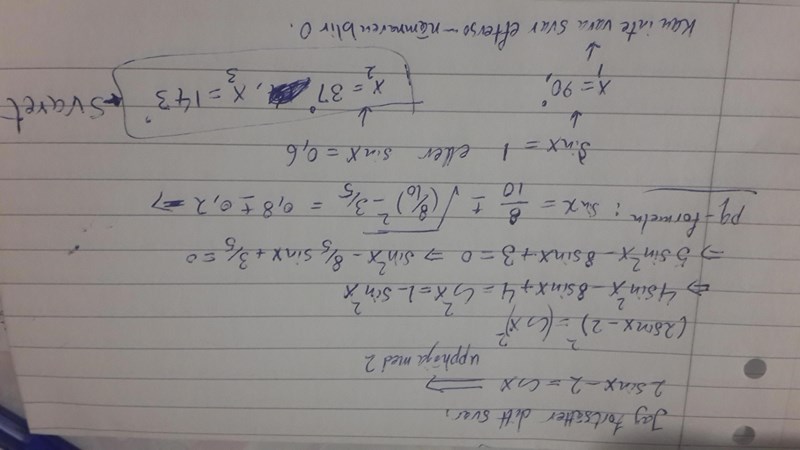 Jag fortsätter ditt svar:
2 sinx - 2 = cosx ⟹ upphöja med 2
(2sinx - 2)² = (cosx)²
⇒ 4sin²x - 8sinx + 4 = cos²x = 1 - sin²x
⇒ 5sin²x - 8sinx + 3 = 0 ⇒ sin²x - 8/5 sinx + 3/5 = 0
pq-formeln: sinx = 8/10 ± √(8/10)² - 3/5 = 0,8 ± 0,2 ⇒
sinx = 1 eller sinx = 0,6
↓ ↓
x₁ = 90°, x₂ = 37°, x₃ = 143° ← svaret
↓
Kan inte vara svar efterso- nämnaren blir 0.